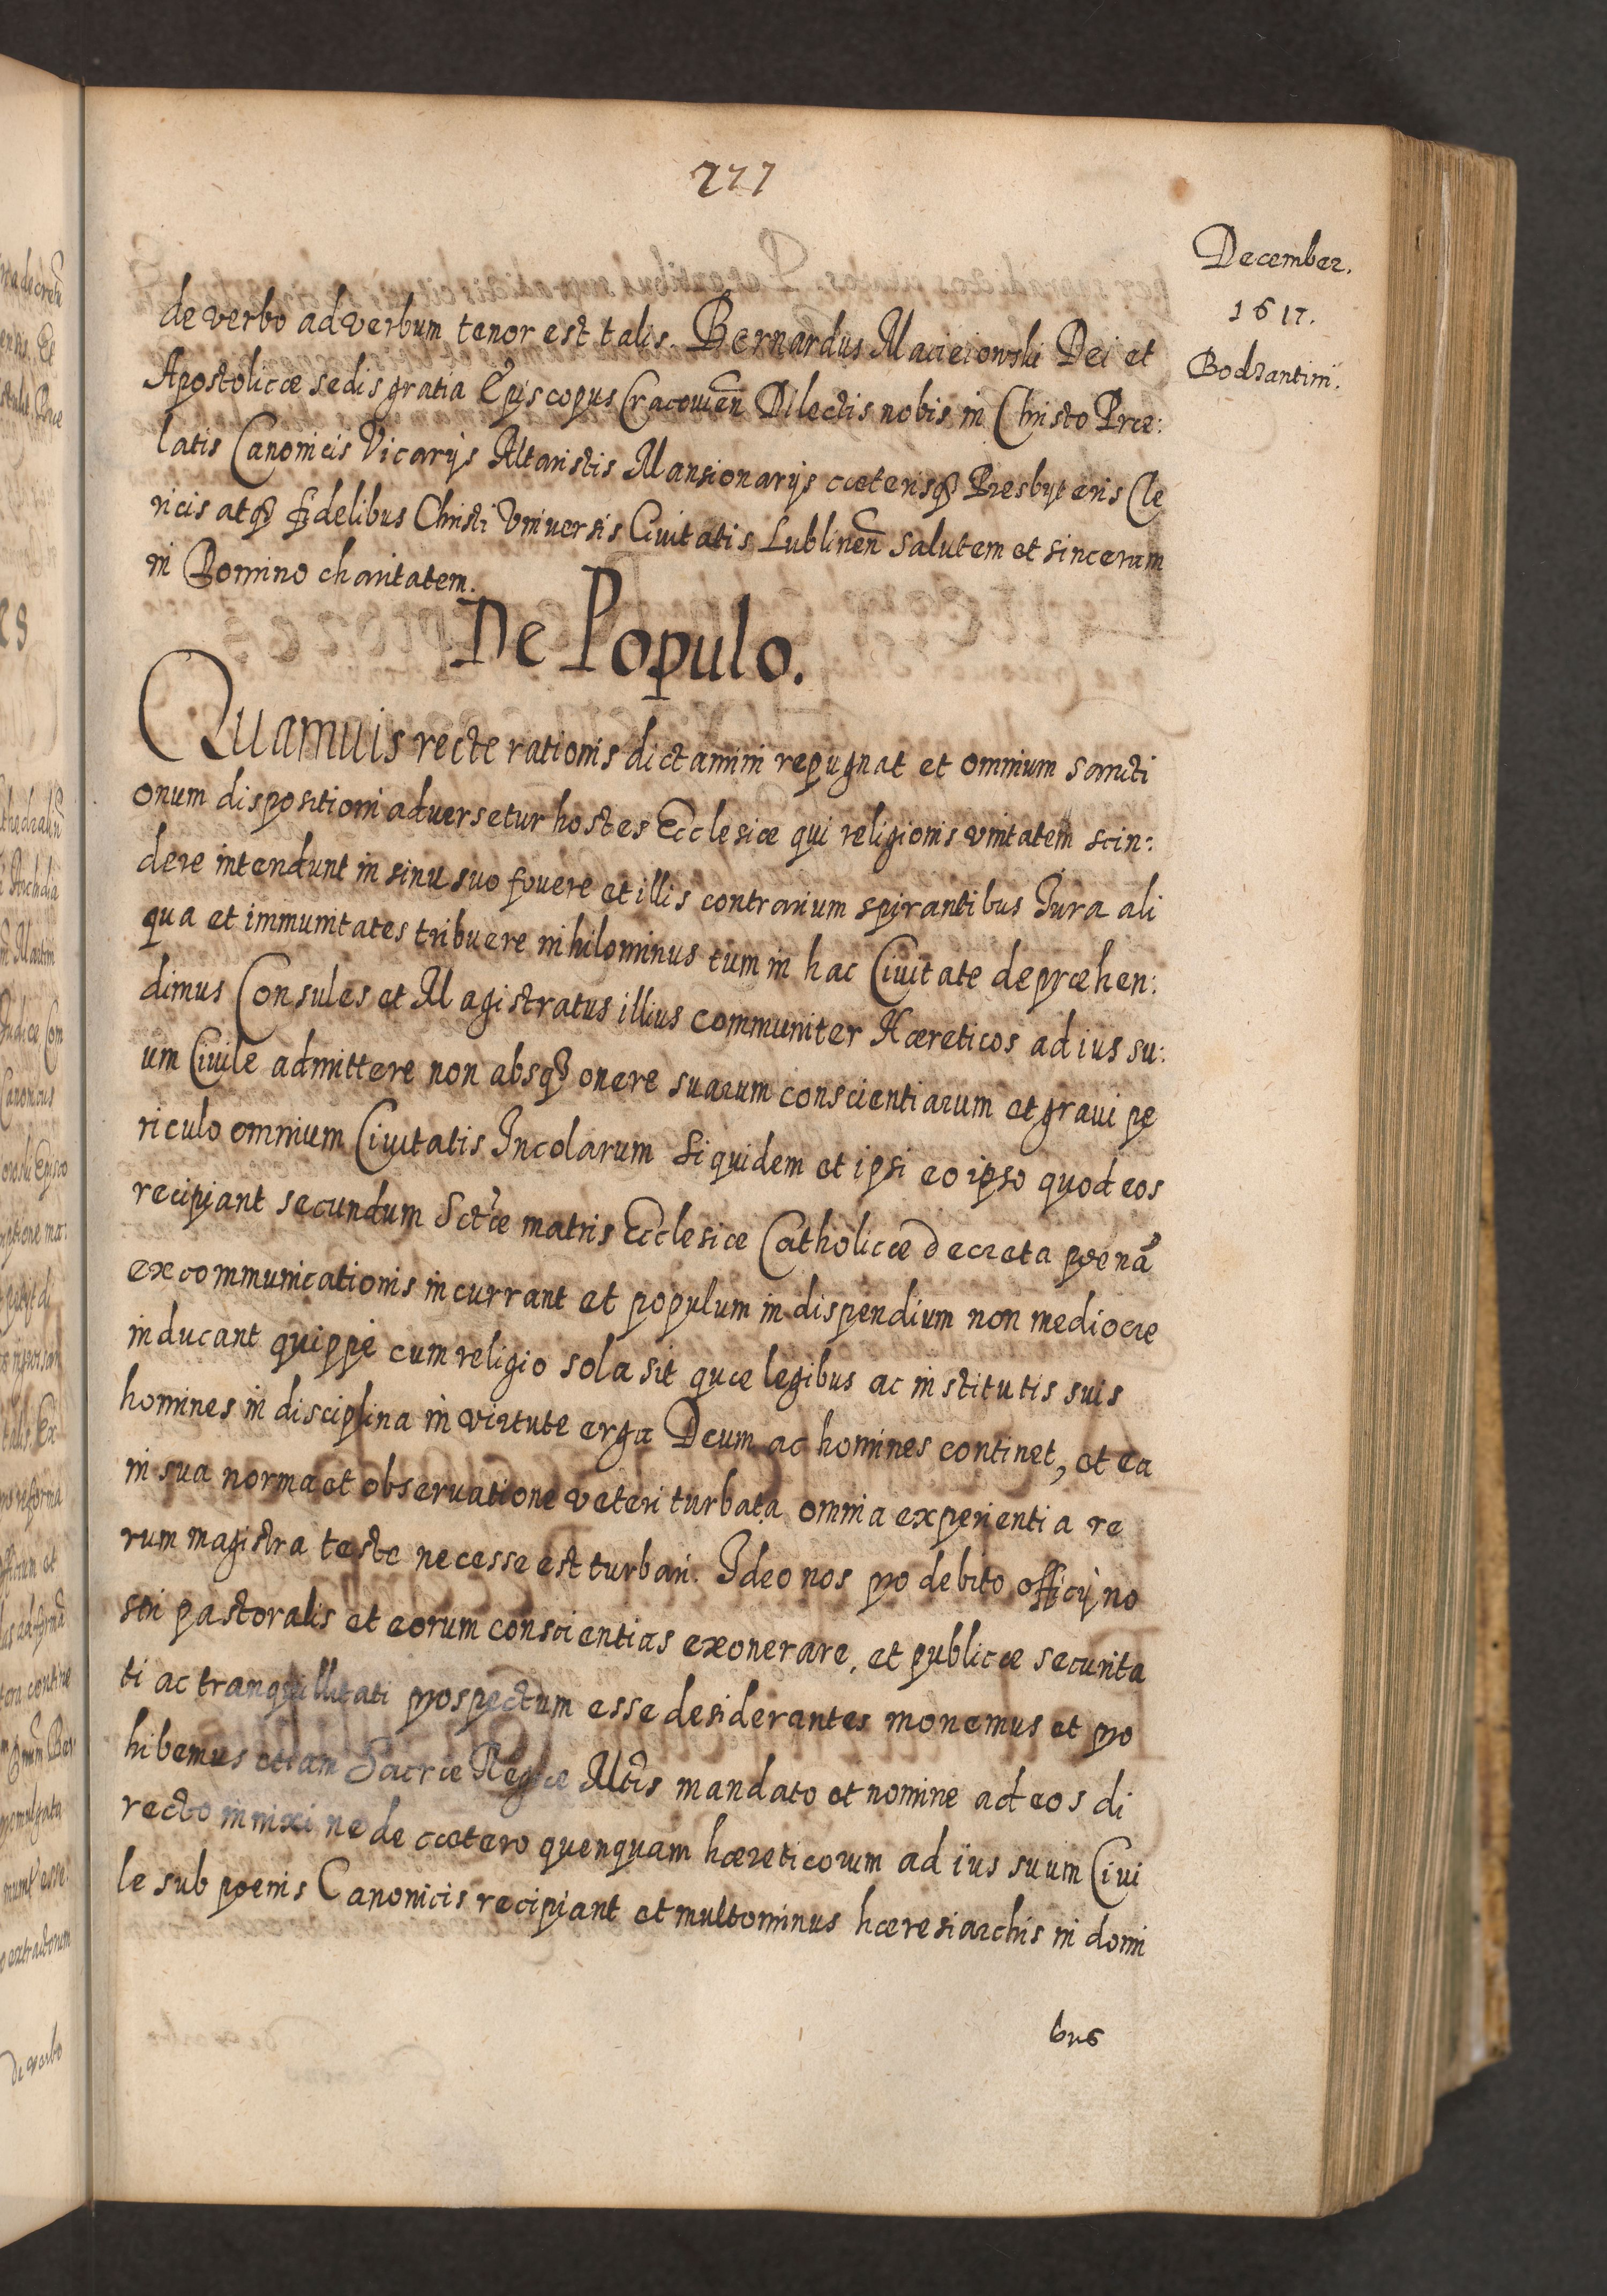 277
December.
1617.
Bodzantini.
de verbo ad verbum tenor est talis. Bernardus Macieiowski Dei et
Apostolicæ sedis gratia Episcopus Cracovień Dilectis nobis in Christo Præ:
latis Canonicis Vicarijs Altaristis Mansionarijs cæterisq3 Presbyteris Cle
ricis atq3 fidelibus Christi Vniversis Civitatis Lublineń salutem et sinceram
in Domino charitatem.
De Populo.
Quamuis recte rationis dictamini repugnat et omnium sancti
onum dispositioni adversetur hostes Ecclesiæ qui religionis vnitatem scin:
dere intendunt in sinu suo fovere et illis contrarium spirantibus Jura ali
qua et immunitates tribuere nihilominus tum in hac Civitate depræhen:
dimus Consules et Magistratus illius communiter Hæreticos ad ius su:
um Civile admittere non absq3 onere suarum conscientiarum et gravi pe
riculo omnium Civitatis Incolarum siquidem et ipsi eo ipso quod eos
recipiant secundum Sctæ matris Ecclesiæ Catholicæ decreta pœnā
excommunicationis incurrant et populum in dispendium non mediocre
inducant quippe cum religio sola sit quæ legibus ac institutis suis
homines in disciplina in virtute erga Deum ac homines continet, et ea
in sua norma et observatione veteri turbata omnia experientia re
rum magistra teste necesse est turbari. Ideo nos pro debito officij no
stri pastoralis et eorum conscientias exonerare, et publicæ securita
ti ac tranquillitati prospectum esse desiderantes monemus et pro
hibemus etiam Sacræ Regiæ Mtis mandato et nomine ad eos di
recto innixi ne de cætero quenquam hæreticorum ad ius suum Civi
le sub pœnis Canonicis recipiant et multominus hæresiarchis in domi
bus